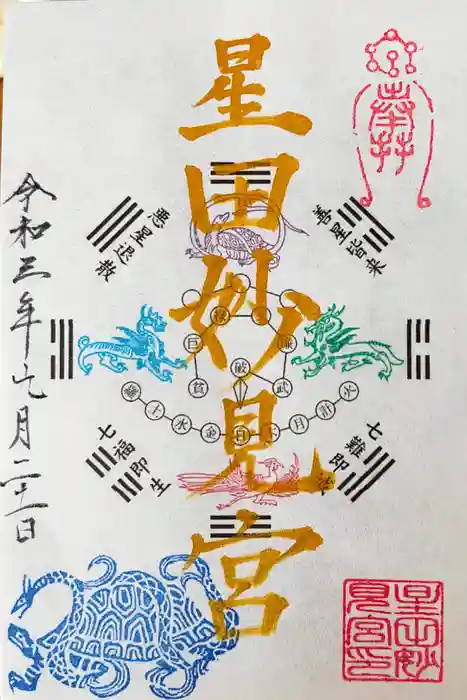 奉拝
星田妙見宮
令和三年七月二十一日
悪星退散
善星皆来
七福即生
七難即滅
禄
巨
廉
破
武
土
水
金
日
月
計
火
星田妙見宮印